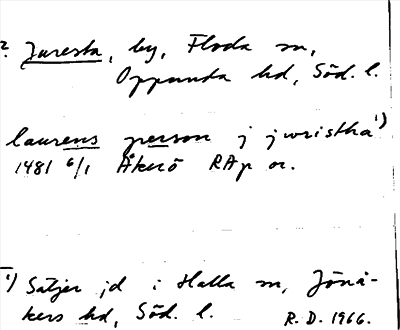 ? Juresta, by, Floda sn,
Oppunda hd, Söd. l.
laurens person j jwristha 1)
1481 6/1 Åkerö RAp or.
1) Säljer jd i Halla sn, Jönå-
kers hd, Söd. l. R.D. 1966.